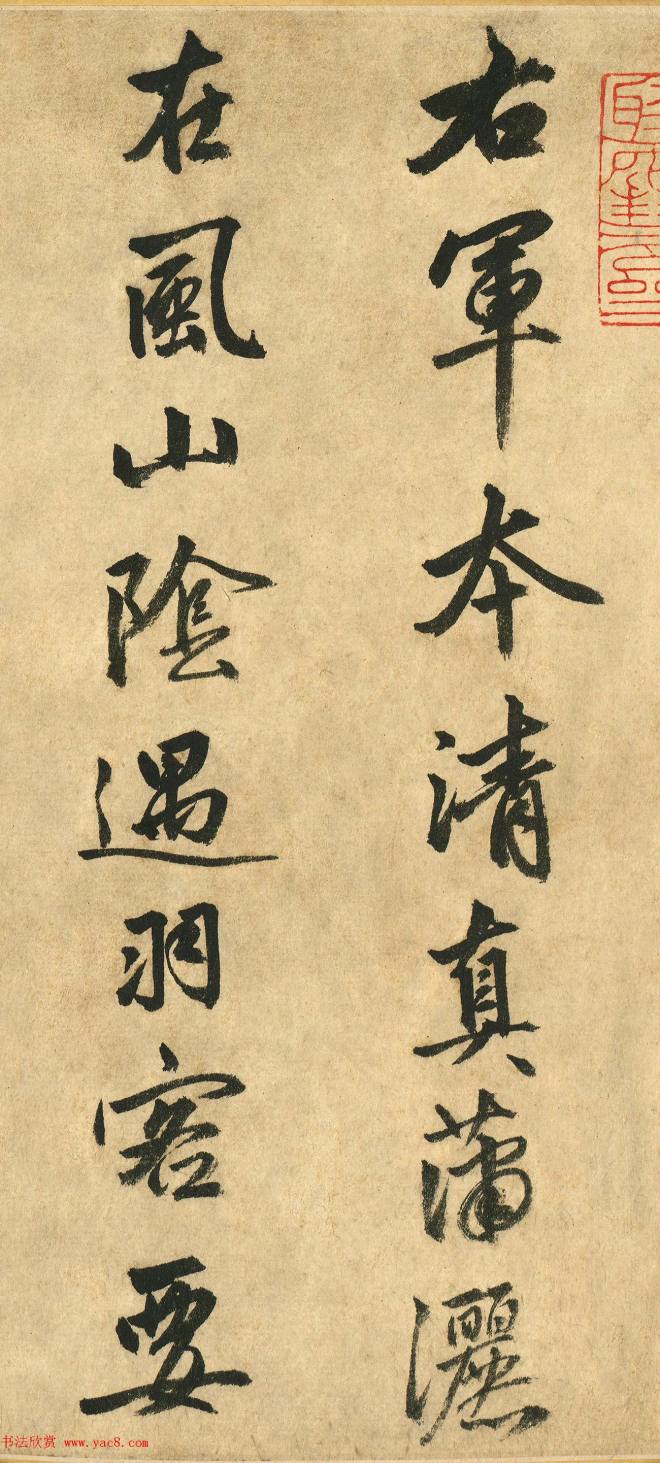 右軍本清真蕭灑
在風山陰遇羽客要
书法欣赏 www.yac8.com